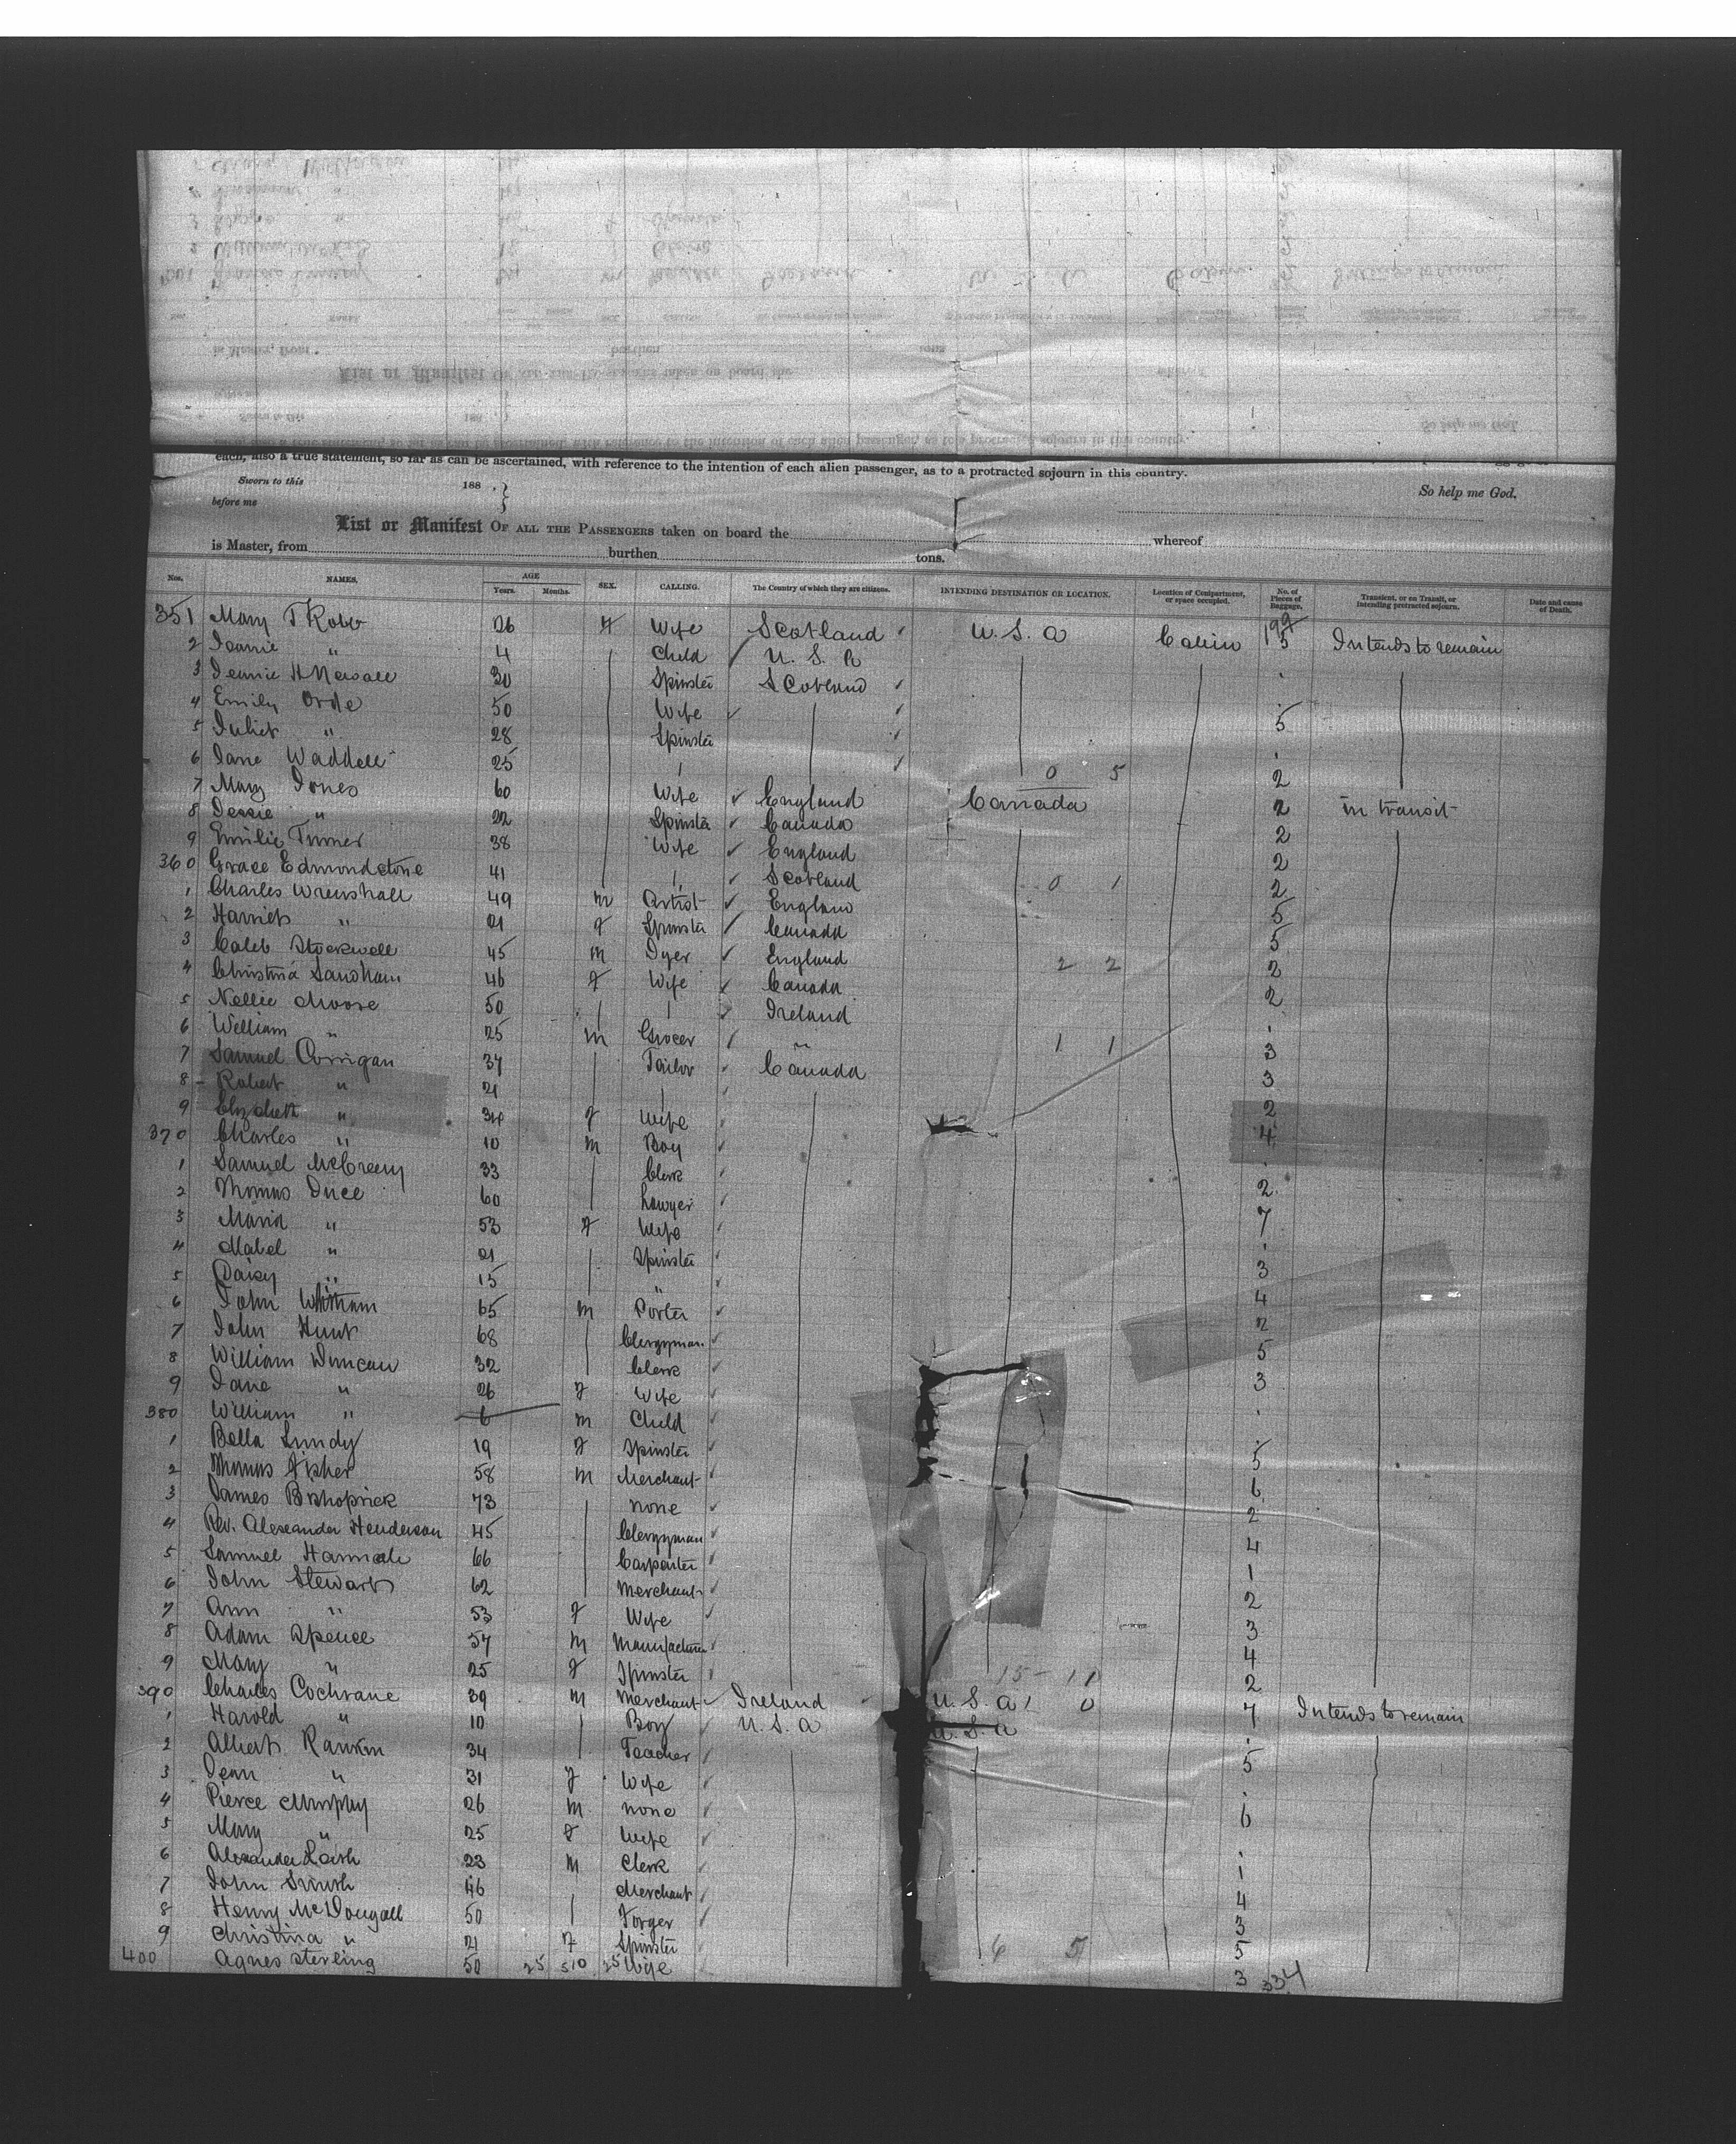 each, also a true statement, so far as can be ascertained, with reference to the intention of each alien passenger, as to a protracted sojourn in this country.
Sworn to this 188 .}
before me
So help me God.
List or Manifest OF ALL THE PASSENGERS taken on board the whereof
is Master, from burthen tons.
Nos. NAMES. AGE Years. Months. SEX. CALLING. The Country of which they are citizens. INTENDING DESTINATION OR LOCATION. Location of Compartment, or space occupied. No. of Pieces of Baggage. Transient, or in Transit, or Intending protracted sojourn. Date and cause of Death.
199
351 Mary T Robb 26 F Wife Scotland U.S.A Cabin 5 Intends to remain
2 Jeannie " 4 Child U.S.A
3 Jennie H 30 Spinster Scotland
4 Emily Orde 50 Wife 5
5 Juliet " 28 Spinster
6 Jane Waddell 25 0 5 2
7 Mary Jones 60 Wife England Canada 2 in transit
8 Jessie " 22 Spinster Canada 2
9 Emilie Turner 38 Wife England 2
360 Grace Edmondstone 41 Scotland 0 1 2
1 Charles Wrenshall 49 m Artist England 5
2 Harriet " 21 F Spinster Canada 5
3 Caleb Stockwell 45 m Dyer England 2 2 2
4 Christina Sandham 46 F Wife Canada 2
5 Nellie Moore 50 Ireland
6 William " 25 m Grocer " 1 1 3
7 Samuel Corrigan 37 Tailor Canada 3
8 Robert " 21 2
9 Elizabeth " 34 F Wife 4
370 Charles " 10 m Boy
1 Samuel McCreery 33 Clerk 2
2 Thomas Duce 60 Lawyer 7
3 Maria " 53 F Wife
4 Mabel " 21 Spinster 3
5 Daisy " 15 " 4
6 John 65 m Porter 2
7 John Hunt 68 Clergyman 5
8 William Duncan 32 Clerk 3
9 Jane " 26 F Wife
380 William " 6 m Child
1 Bella Lundy 19 F Spinster 5
2 Thomas Fisher 58 m Merchant 6
3 James Bishoprick 73 none 2
4 Rev. Alexander Henderson 45 Clergyman 4
5 Samuel Hannah 66 Carpenter 1
6 John Stewart 62 Merchant 2
7 Ann " 53 F Wife 3
8 Adam Spence 57 m Manufacturer 4
9 Mary " 25 F Spinster 15 - 11 2
390 Charles Cochrane 39 m Merchant Ireland U.S.A 1 0 7 Intends to remain
1 Harold " 10 Boy U.S.A U.S.A
2 Albert Rankin 34 Teacher 5
3 Jean " 31 F Wife
4 Pierce Murphy 26 m none 6
5 Mary " 25 F Wife
6 Alexander 23 m Clerk 1
7 John Smith 46 Merchant 4
8 Henry McDougall 50 Forger 3
9 Christina " 21 F Spinster 6 5 5
400 Agnes Sterling 50 25 510 25 Wife 3 334